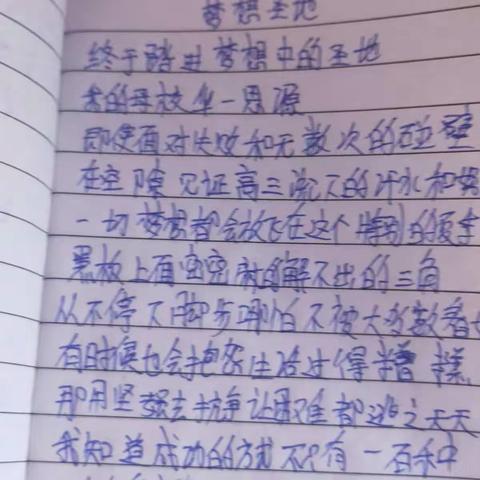 梦想圣地
终于踏进梦想中的圣地
我的母校华一思源
即使面对失败和无数次的碰壁
在空隙见证高三流下的汗水和
一切梦想都会放飞在这个特别的领
黑板上面密密麻麻解不出的三角
从不停下脚步哪怕不被大多数看
有时候也会把生活过得糟糕
那用坚强去抗争让困难都逃之夭夭
我知道成功的方式不只有一百种